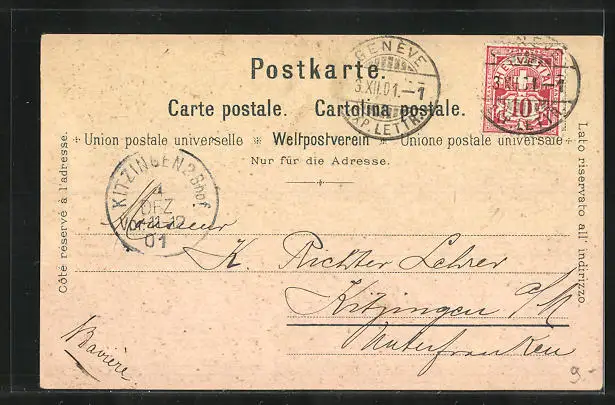 Postkarte.
Carte postale. Cartolina postale.
Union postale universelle Weltpostverein Unione postale universale
Nur für die Adresse.
Côté réservé à l'adresse.
Lato riservato all' indirizzo.
GENÈVE
3.XII.01.–1
EXP. LETTR.
HELVETIA
10
KITZINGEN 2 Bhof
4
DEZ
Vor 11-12
01
Monsieur
K. Richter Lehrer
Kitzingen a/M
Unterfranken
Bavière
9-